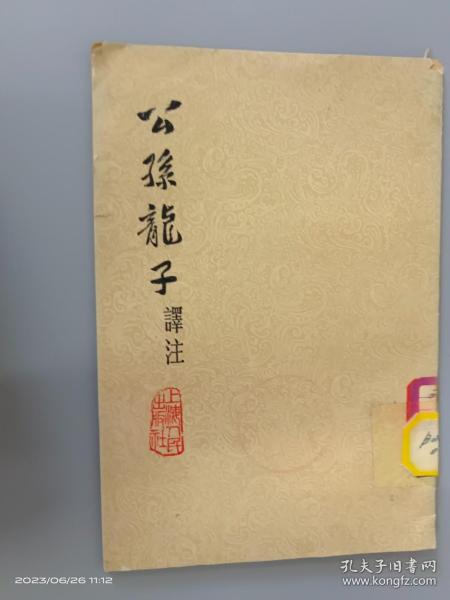 公孫龍子
譯注
上海人民
出版社
2023/06/26 11:12
孔夫子旧书网
www.kongfz.com